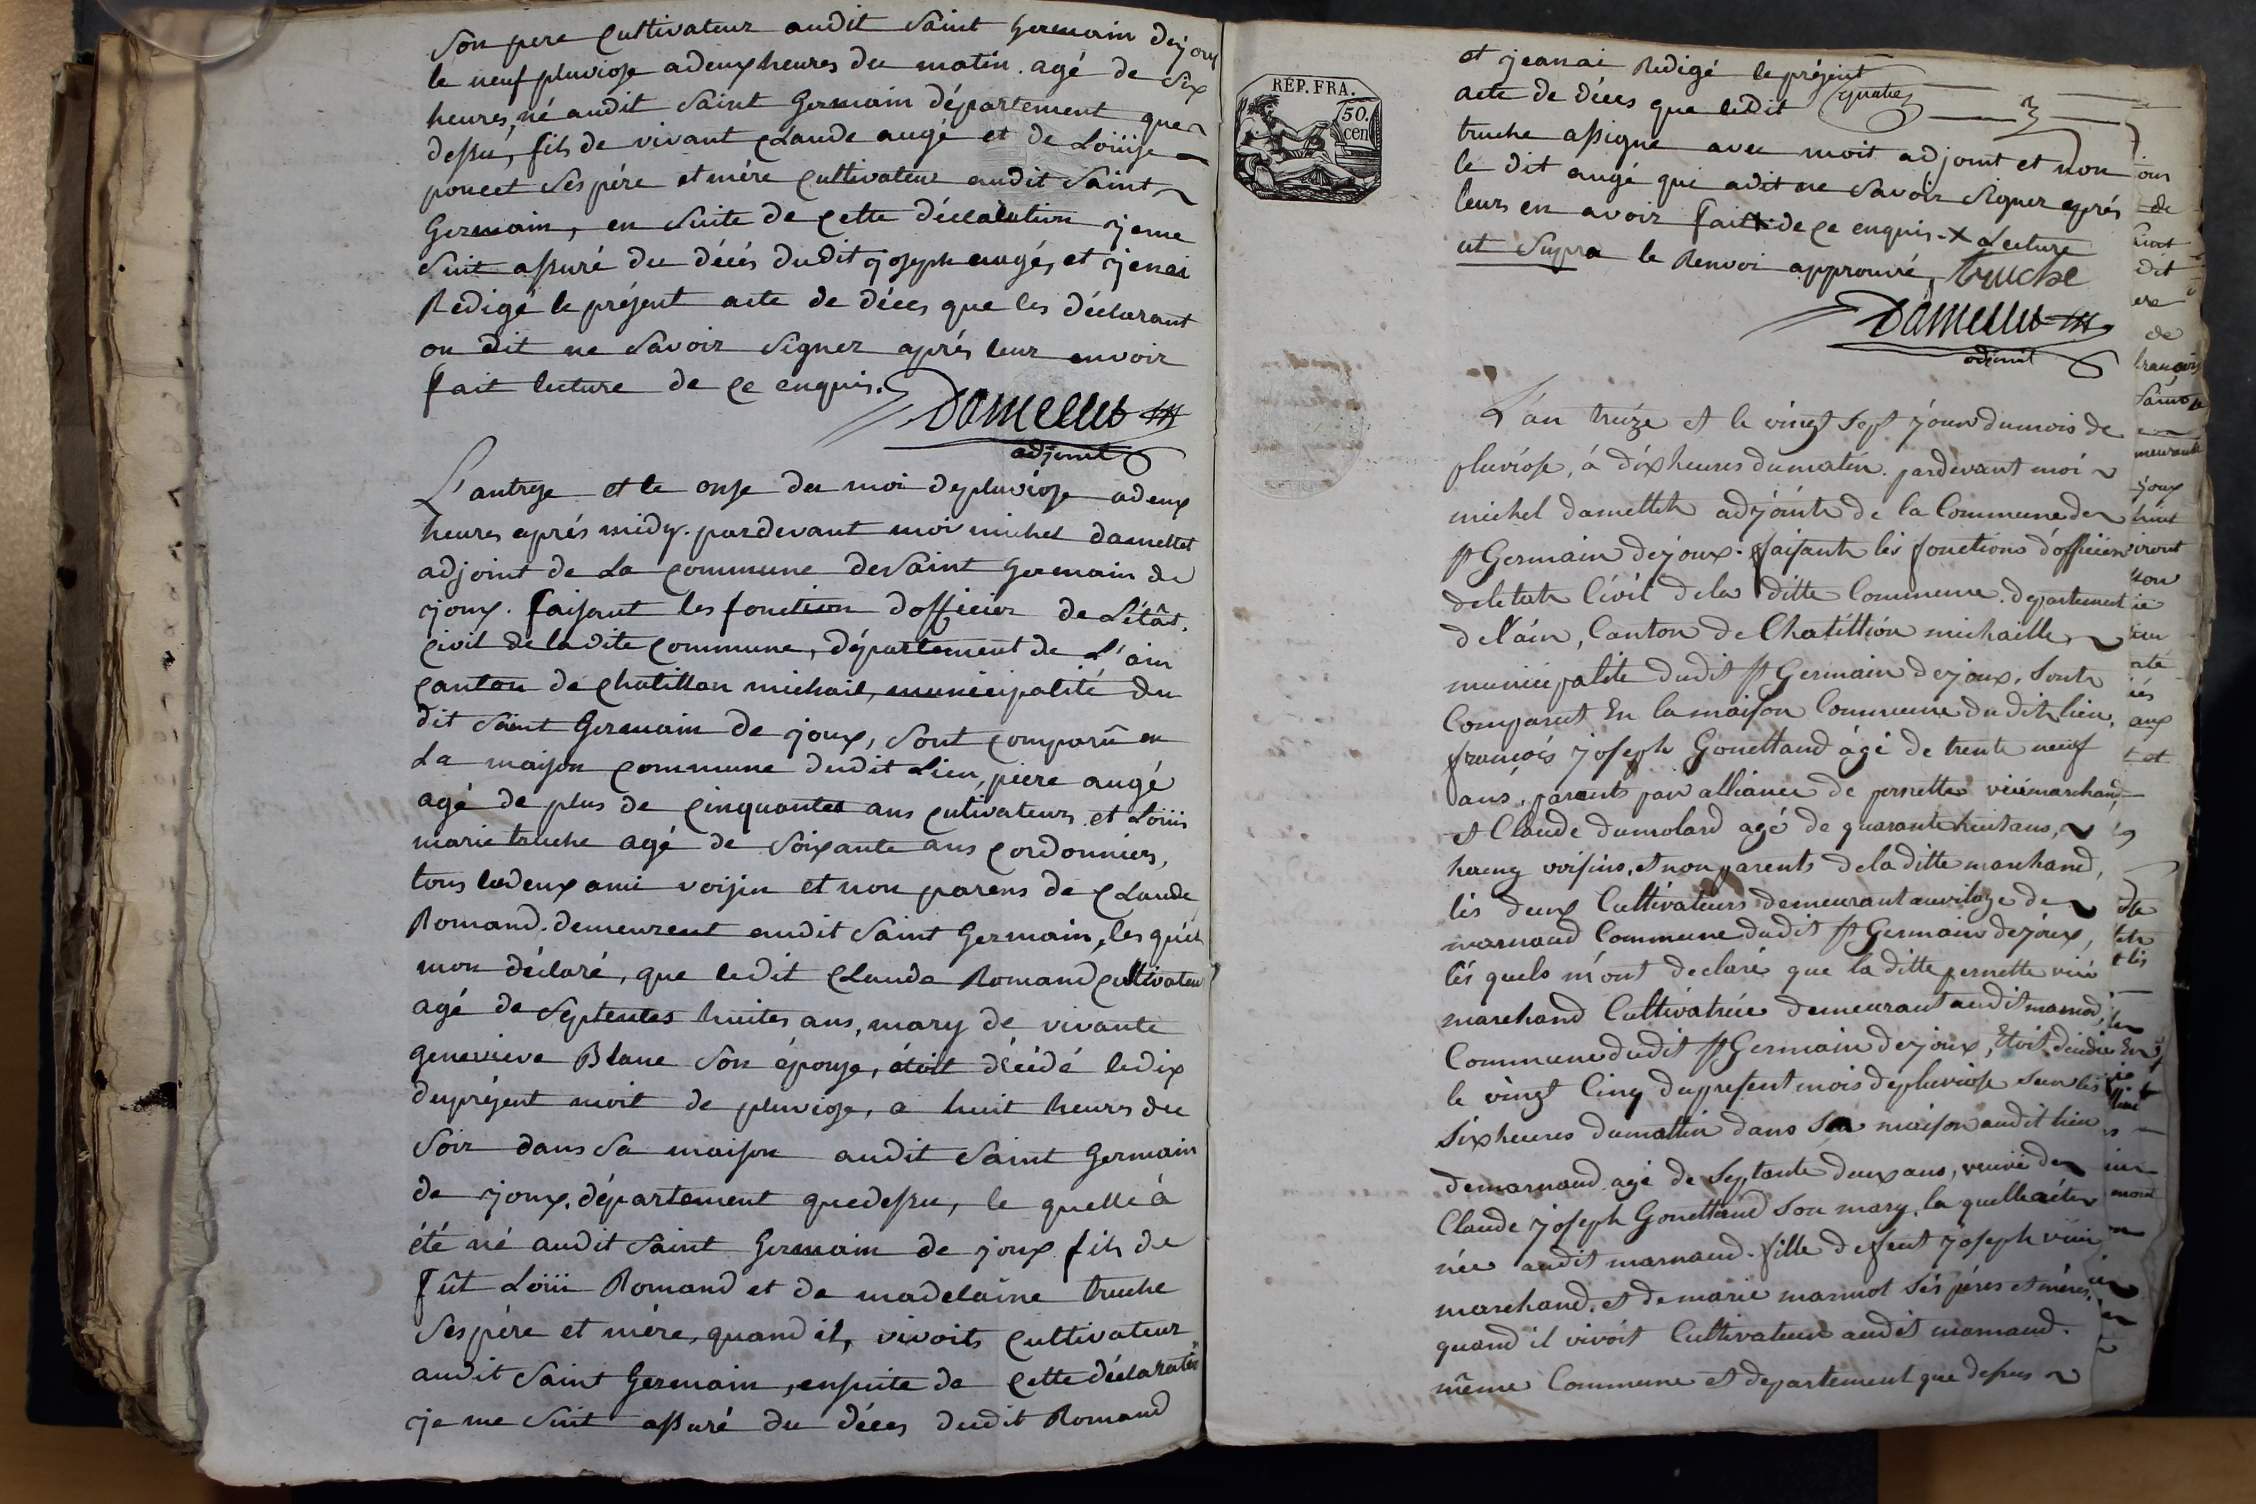 Son pere Cultivateur audit Saint Germain dejoux
le neuf pluviose adeux heures du matin. agé de Six
heures, né audit Saint Germain département que
dessu, fils de vivant Claude augé et de Loüise
poncet Ses pére et mére Cultivateur audit Saint
Germain, en Suite de Cette déclalation jeme
Suit assuré du décés dudit joseph augé, et jenai
Redigé le présent acte de déces que les déclarant
on dit ne Savoir Signer aprés leur envoir
fait lecture de Ce enquis.
Damettet
adjoint
L'antrese et le onse du moi depluviose adeux
heures aprés midy. pardevant moi michel damettet
adjoint de La Commune de Saint Germain de
joux. faisant les fonction dofficier de Létât
Civil de ladite Commune, département de L'ain
Canton de Chatillon michail, municipalité du
dit Saint Germain de joux, Sont Comparû en
La maison Commune dudit Lieu, piere augé
agé de plus de Cinquantes ans Cutivateurs et Loüis
marie truche agé de Soixante ans Cordonniers,
tous les deux ami voisin et non parens de Claude
Romand. demeurent audit Saint Germain, les quels
mon déclaré, que ledit Claude Romand Cultivateur
agé de Septentes huites ans, mary de vivante
Genevieve Blanc Son épouse, étoit décédé ledix
duprésent moit de pluviose, a huit heures du
Soir dans Sa maison audit Saint Germain
de joux, département quedessu, le quelle à
été né audit Saint Germain de joux fils de
fût Loüi Romand et de madelaine truche
Ses pére et mére, quand il, vivoits Cultivateur
audit Saint Germain, ensuite de Cette déclaratin
je me Suit assuré du déces dudit Romand
REP. FRA.
50.
cen
et jeanai Redigé le présent
acte de déces que ledit
truche assigné avec moit adjoint et non
le dit augé qui adit ne Savoir Signer aprés
leurs en avoir fait de Ce enquis. X Lecture
ut Supra le Renvoi approuvé, truche
Damettet
adjoint
L'an treize et le vingt Sept jour dumois de
pluviose, à dix heures dumatin. pardevant moi
michel damettet adjoint de la Commune de
St Germain dejoux. faisant les fonctions dofficier
deletat Civil dela ditte Commune. departement
de l'ain, Canton de Chatillion michaille,
municipalite dudit St Germain dejoux. Sont
Comparut En la maison Commune dudit lieu,
françois joseph Gonettand âgé de trente neuf
ans, parents par alliance de pernette marchand,
et Claude dumolard agé de quarante huit ans,
voisins, et non parents de la ditte marchand,
lés deux Cultivateurs demeurant auvilage de
marnand Commune dudit St Germain dejoux,
lés quels m'ont declaré que la ditte pernette
marchand Cultivatrice demeurant audit marnod,
Commune dudit St Germain dejoux, Etoit
le vingt Cinq duprésent mois depluviose Sur les
Six heures dumattin dans Sa maison audit lieu
demarnand agé de Septante deux ans, veuve de
Claude joseph Gonettand Son mary, la quelle a été
née audit marnand. fille defeut joseph
marchand. et demarie marmot Sés péres et méres,
quand il vivoit Cultivateur audit marnand.
même Commune et departement que dessus